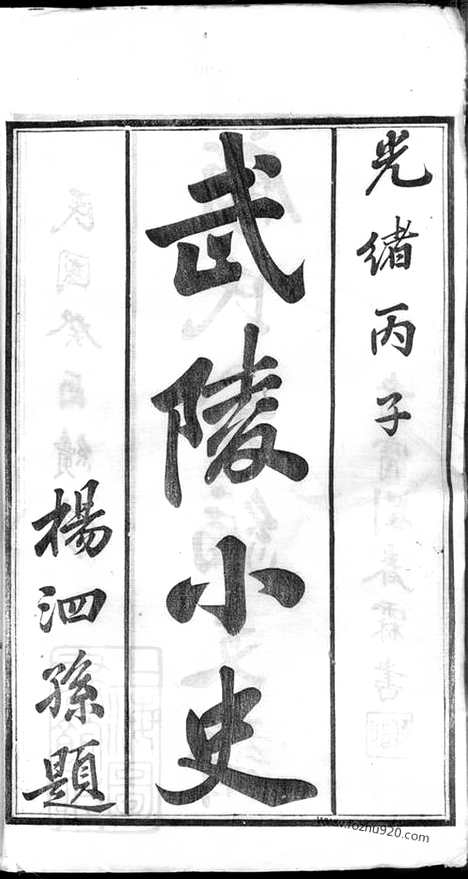 光緒丙子
武陵小史
楊泗孫題
www.fozhu920.com